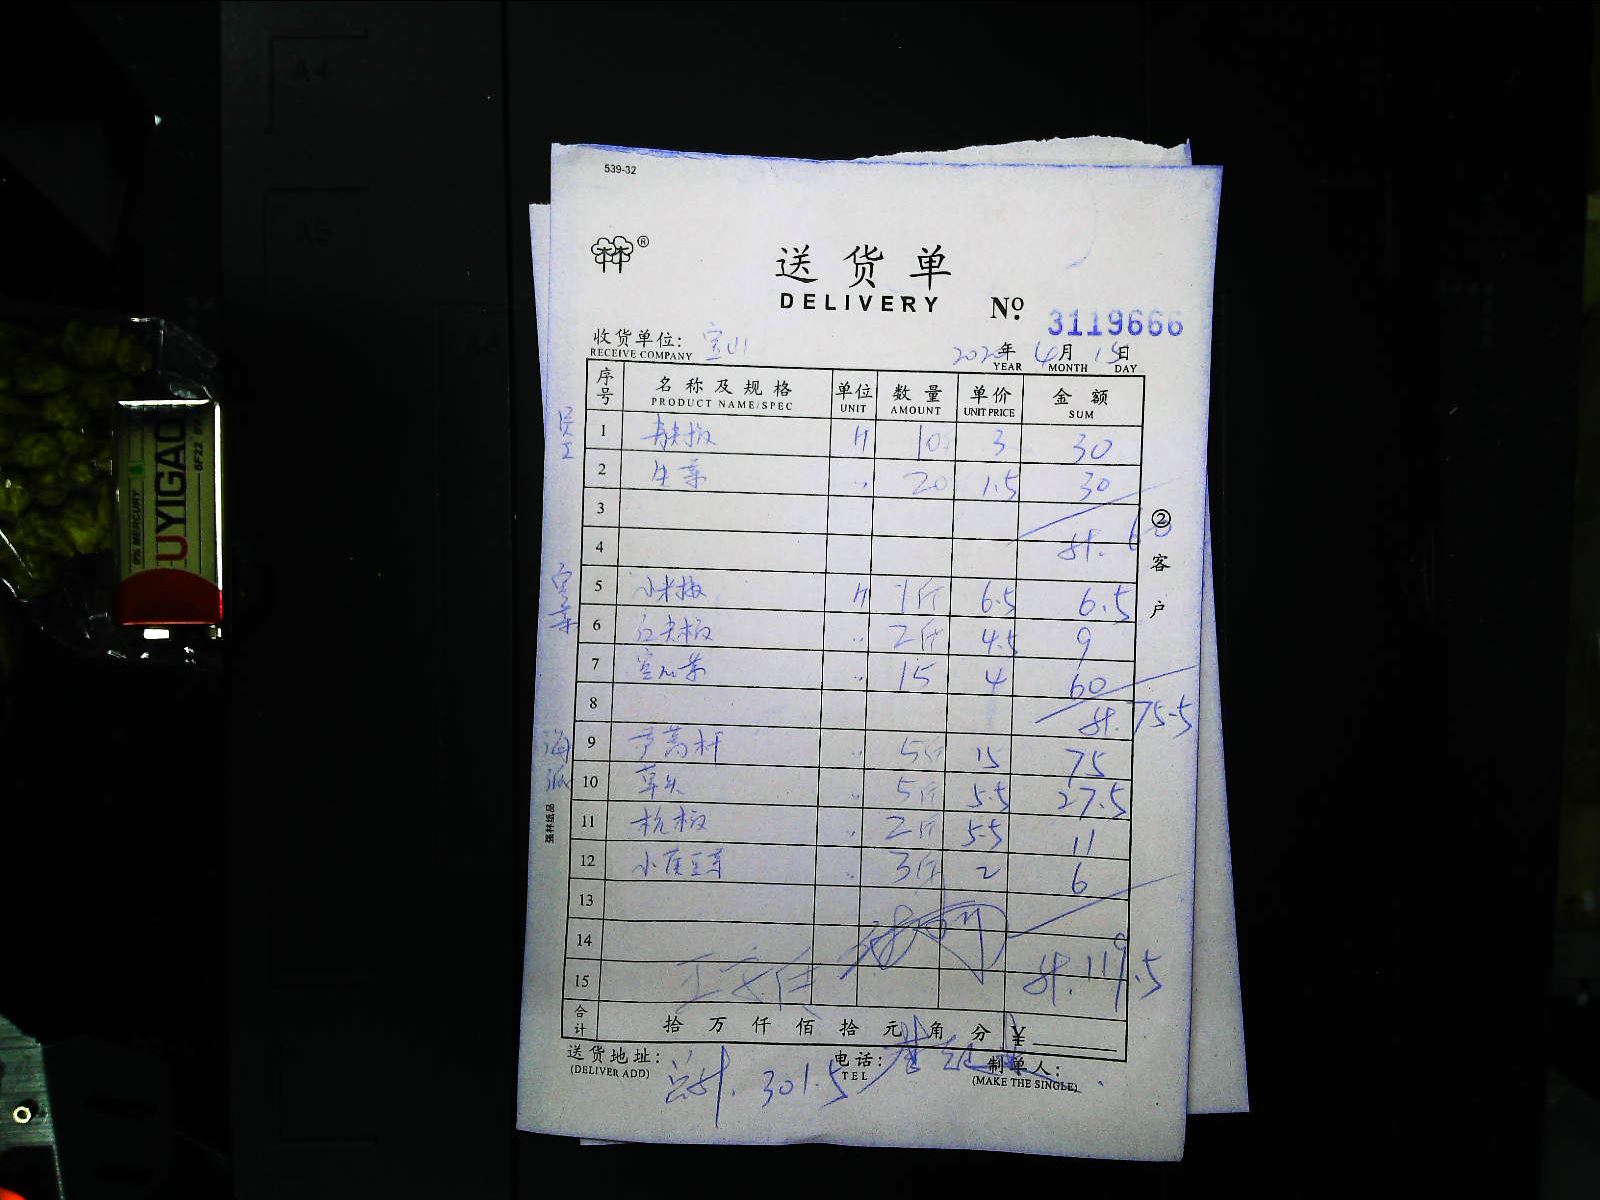 539-32
送货单
DELIVERY
No. 3119666
收货单位: 宝山
RECEIVE COMPANY
2020年 4月 15日
YEAR MONTH DAY
序号 名称及规格 单位 数量 单价 金额
PRODUCT NAME/SPEC UNIT AMOUNT UNIT PRICE SUM
员工
1 青尖椒 斤 10 3 30
2 生菜 〃 20 1.5 30
3
4 计. 60
5 小米椒 斤 1斤 6.5 6.5
6 红尖椒 〃 2斤 4.5 9
7 空心菜 〃 15 4 60
8 计. 75.5
海派
9 芦蒿杆 〃 5斤 15 75
10 草头 〃 5斤 5.5 27.5
11 杭椒 〃 2斤 5.5 11
12 小黄豆芽 〃 3斤 2 6
13
14
15 计. 119.5
合计 拾 万 仟 佰 拾 元 角 分 ¥
送货地址:
(DELIVER ADD)
电话:
TEL
制单人:
(MAKE THE SINGLE)
总计. 301.5
② 客户
强林纸品
UYIGAO
0% MERCURY
6F22
A4
A5